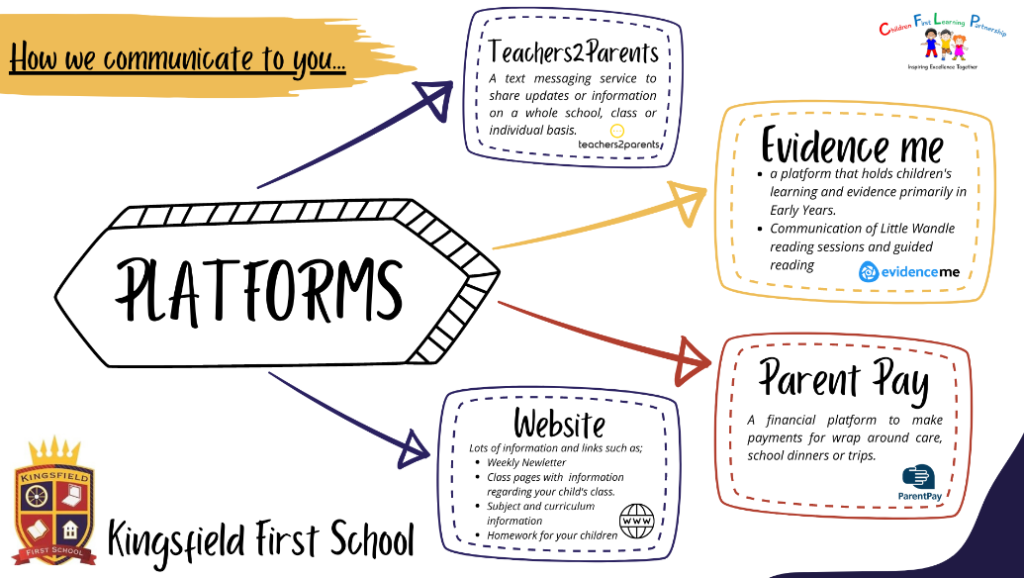 How we communicate to you...
Children First Learning Partnership
Inspiring Excellence Together
Teachers2Parents
A text messaging service to
share updates or information
on a whole school, class or
individual basis.
teachers2parents
Evidence me
• a platform that holds children's
learning and evidence primarily in
Early Years.
• Communication of Little Wandle
reading sessions and guided
reading
evidenceme
PLATFORMS
Parent Pay
A financial platform to make
payments for wrap around care,
school dinners or trips.
ParentPay
Website
Lots of information and links such as;
• Weekly Newletter
• Class pages with information
regarding your child's class.
• Subject and curriculum
information
• Homework for your children
WWW
KINGSFIELD
FIRST SCHOOL
Kingsfield First School